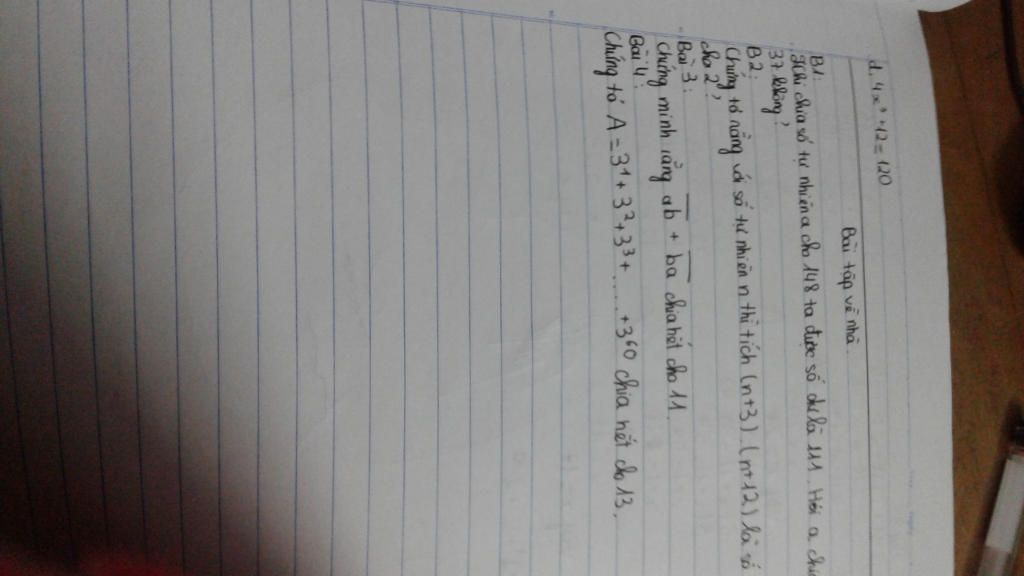 d. 4x³ + 12 = 120
Bài tập về nhà.
B1:
Khi chia số tự nhiên a cho 148 ta được số dư là 111. Hỏi a
37 không?
B2:
Chứng tỏ rằng với số tự nhiên n thì tích (n+3).(n+12) là số
cho 2?
Bài 3:
Chứng minh rằng a̅b̅ + b̅a̅ chia hết cho 11.
Bài 4:
Chứng tỏ A = 3¹ + 3² + 3³ + ..... + 3⁶⁰ chia hết cho 13.